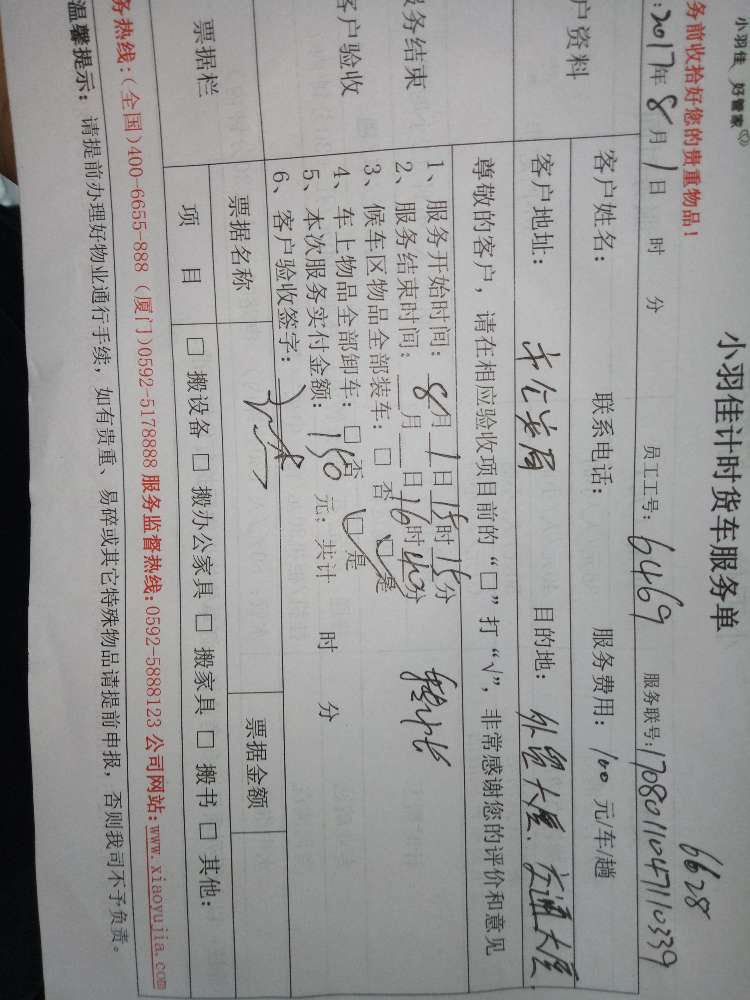 小羽佳 好管家
小羽佳计时货车服务单
6628
务前收拾好您的贵重物品!
员工工号: 6469 服务联号: 17080110471110339
: 2017年 8月 1日 时 分
户资料
客户姓名: 联系电话: 服务费用: 100 元/车/趟
客户地址: 目的地: 外贸大厦、交通大厦
服务结束
客户验收
尊敬的客户,请在相应验收项目前的“□”打“√”,非常感谢您的评价和意见
1、服务开始时间: 8月 1日 15时 15分
2、服务结束时间: 月 日 16时 40分
3、候车区物品全部装车: □ 否 □ 是
4、车上物品全部卸车: □ 否 □ 是
5、本次服务实付金额: 150 元; 共计 时 分
6、客户验收签字:
票据栏
票据名称 票据金额
项 目 □ 搬设备 □ 搬办公家具 □ 搬家具 □ 搬书 □ 其他:
务热线:(全国)400-6655-888 (厦门)0592-5178888 服务监督热线:0592-5888123 公司网站:www.xiaoyujia.com
温馨提示: 请提前办理好物业通行手续,如有贵重、易碎或其它特殊物品请提前申报,否则我司不予负责。